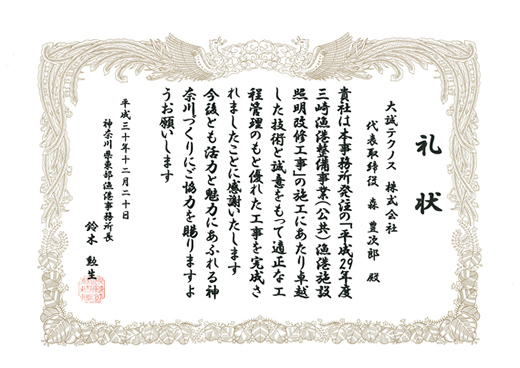 礼状
大誠テクノス 株式会社
代表取締役 森 豊次郎 殿
貴社は本事務所発注の「平成29年度
三崎漁港整備事業(公共)漁港施設
照明改修工事」の施工にあたり卓越
した技術と誠意をもって適正な工
程管理のもと優れた工事を完成さ
れましたことに感謝いたします
今後とも活力と魅力にあふれる神
奈川づくりにご協力を賜りますよ
うお願いします
平成三十年十二月二十日
神奈川県東部漁港事務所長
鈴木 勲生